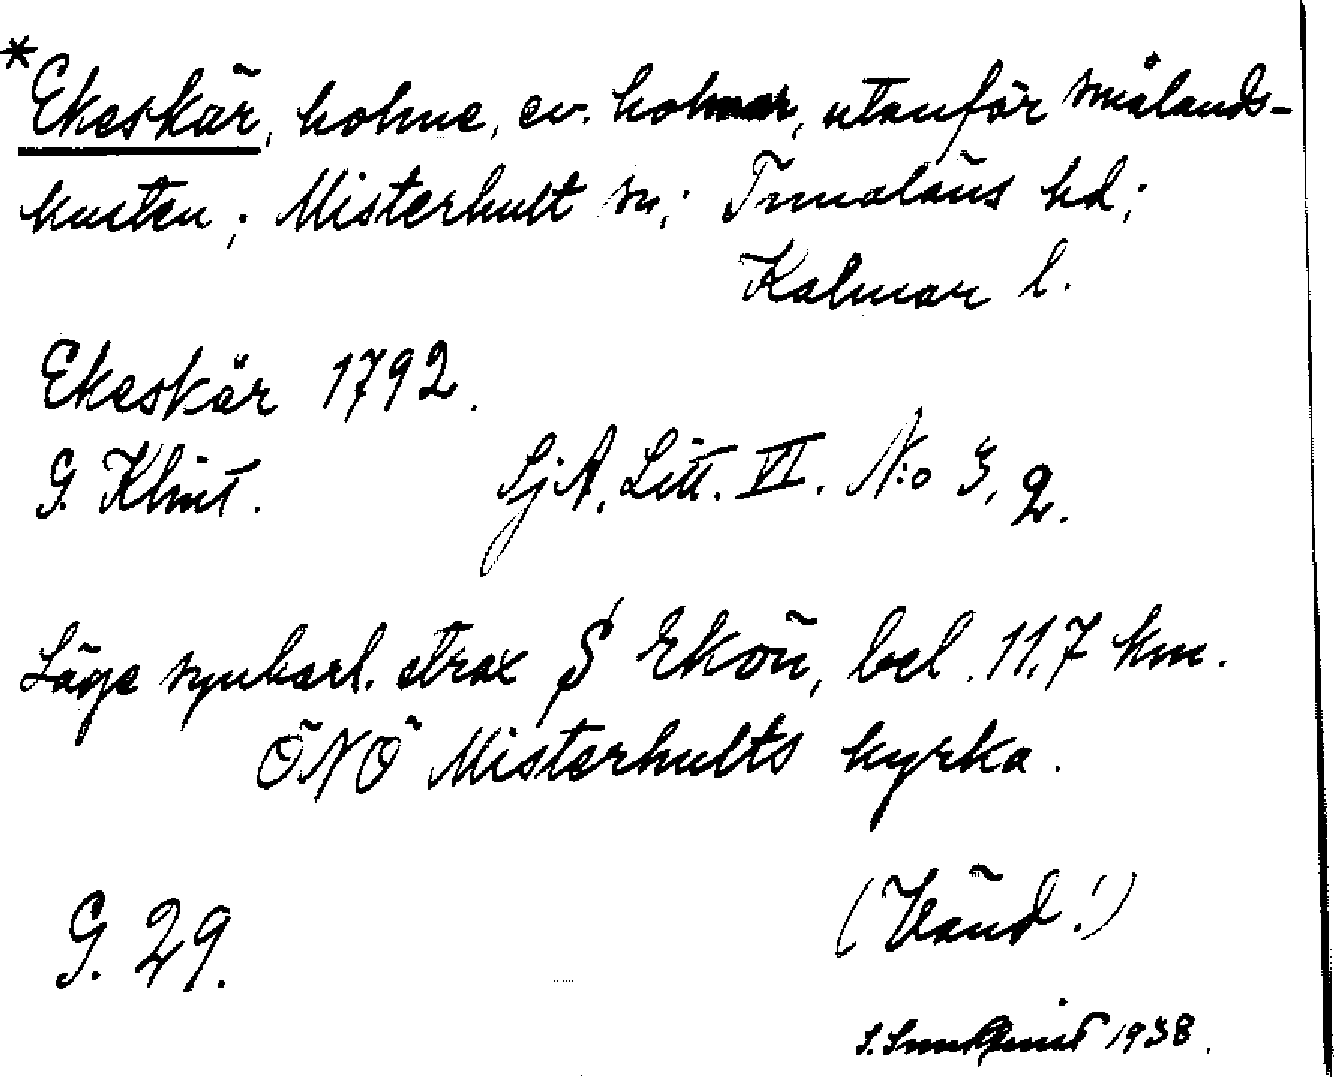 * Ekeskär, holme, ev. holmar, utanför smålands-
kusten; Misterhult sn; Tunaläns hd;
Kalmar l.
Ekeskär 1792.
G. Klint. SjA, Litt. VI. N:o 3, 2.
Läge synbarl. strax S Ekön, bel. 11.7 km.
ÖNÖ Misterhults kyrka.
(Vänd!)
G. 29.
1938.